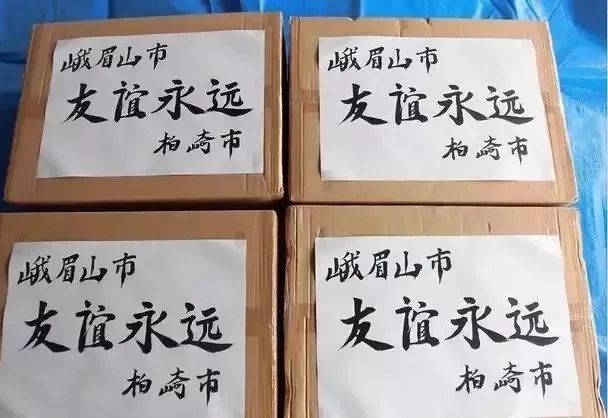 峨眉山市
友谊永远
柏崎市
峨眉山市
友谊永远
柏崎市
峨眉山市
友谊永远
柏崎市
峨眉山市
友谊永远
柏崎市